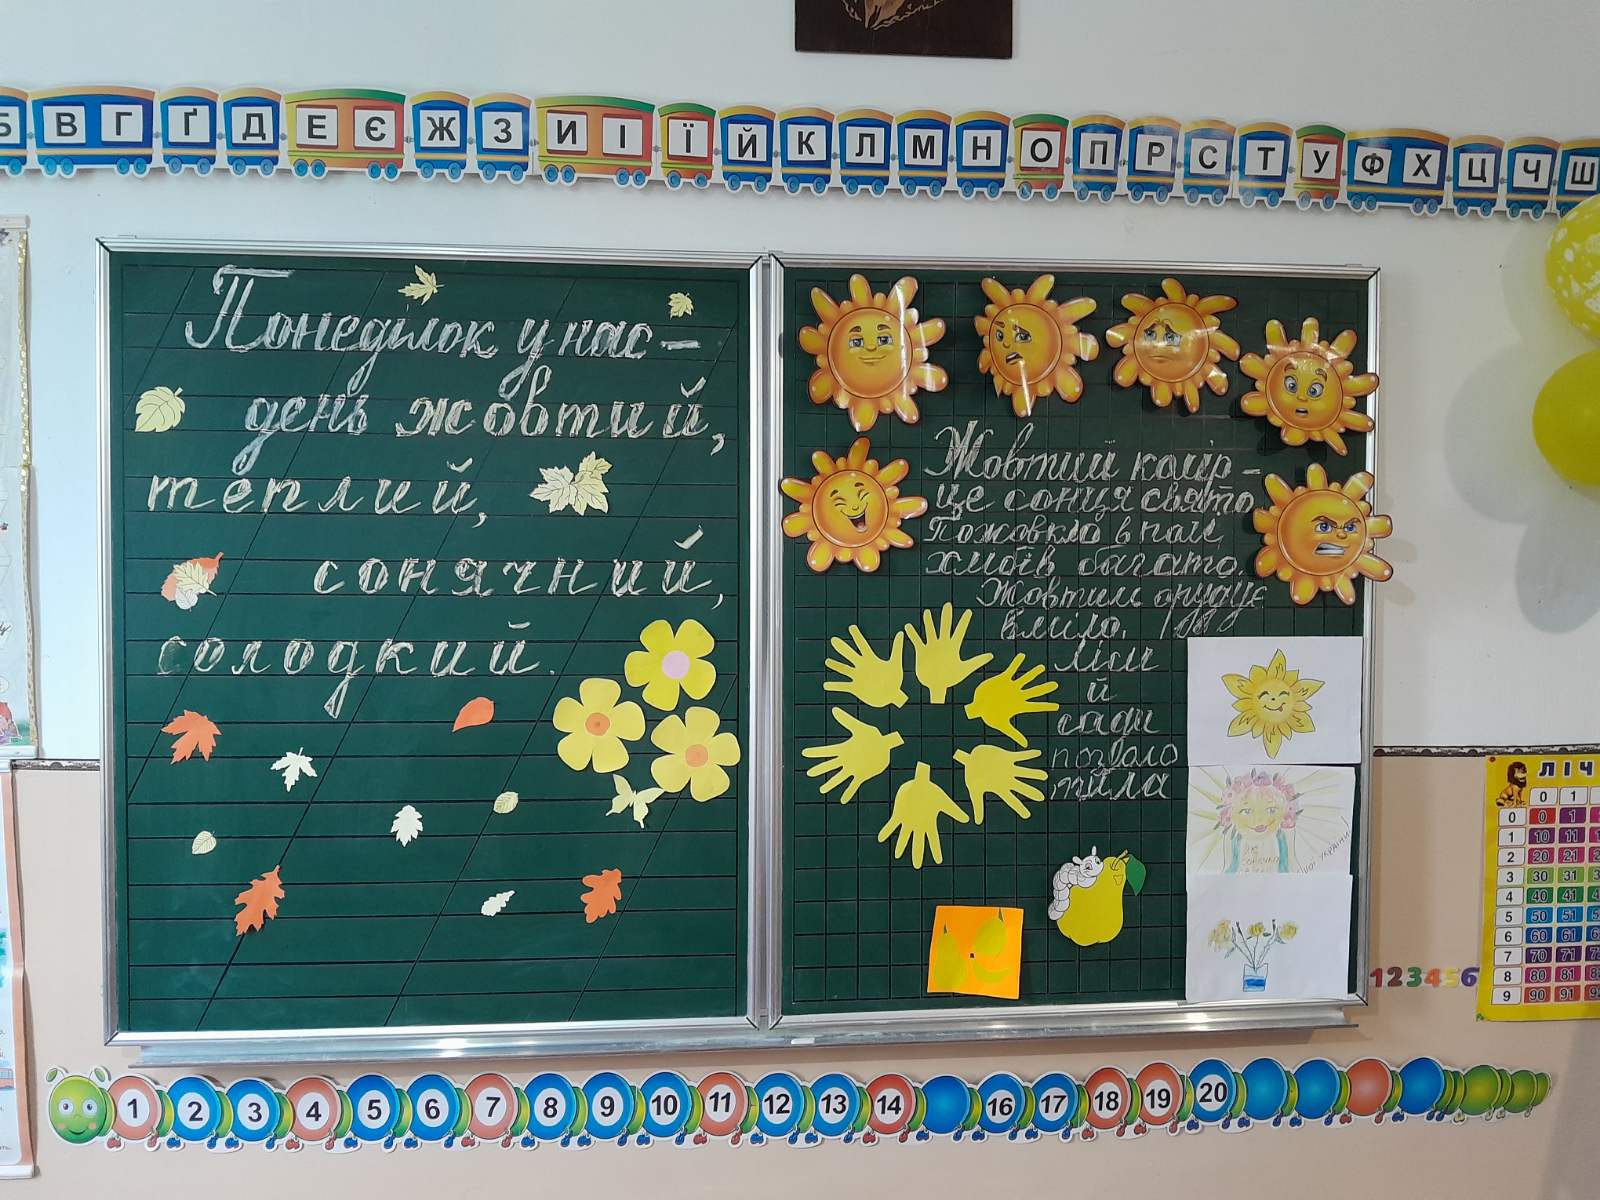 Б В Г Ґ Д Е Є Ж З И І Ї Й К Л М Н О П Р С Т У Ф Х Ц Ч Ш
Понеділок у нас -
день жовтий,
теплий,
сонячний,
солодкий.
Жовтий колір -
це сонця свято
Пожовкло в полі
хлібів багато.
Жовтим орудує
вміло.
ліси
й
сади
позоло
тила
України!
ЛІЧ
0 1
0 0 1
1 10 11
2 20 21
3 30 31
4 40 41
5 50 51
6 60 61
7 70 71
8 80 81
9 90 91
1 2 3 4 5 6
1 2 3 4 5 6 7 8 9 10 11 12 13 14 16 17 18 19 20